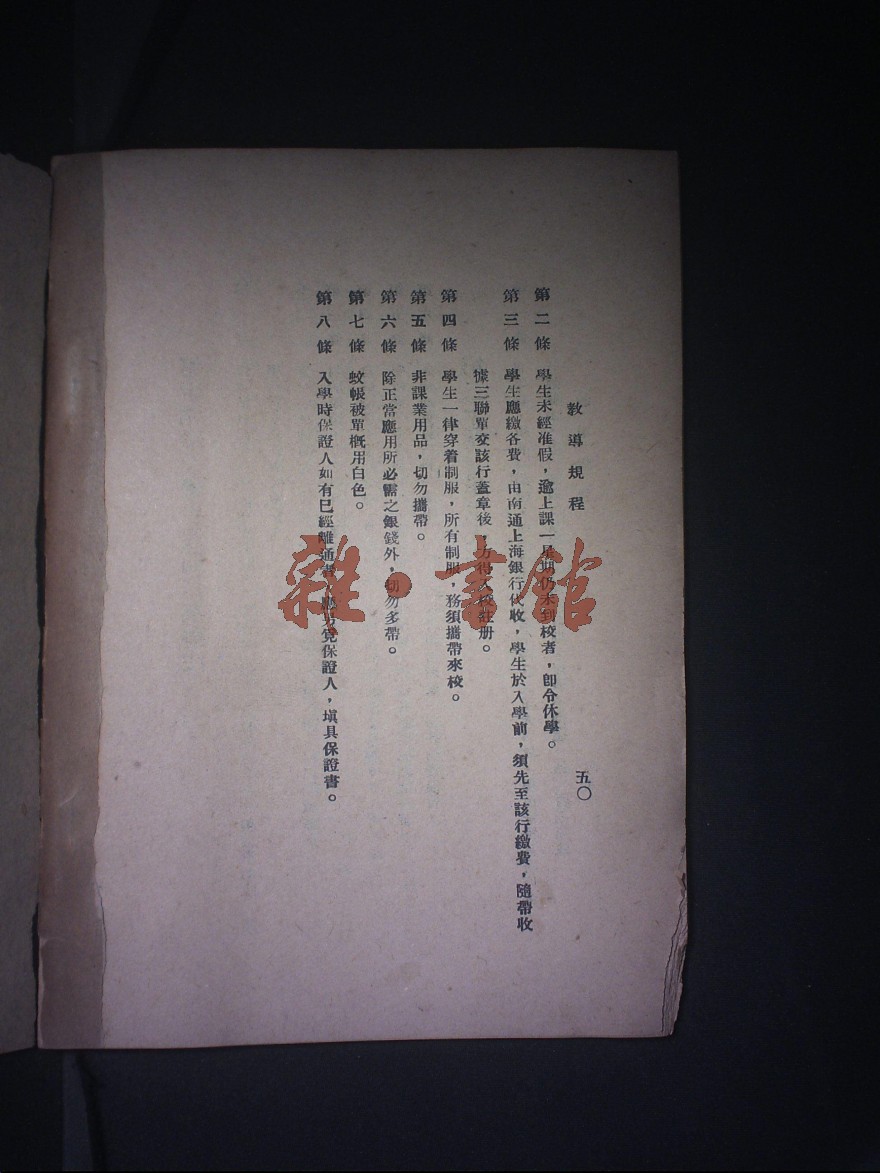 教導規程
五〇
第二條 學生未經准假，逾上課一星期仍未到校者，即令休學。
第三條 學生應繳各費，由南通上海銀行代收，學生於入學前，須先至該行繳費，隨帶收
據三聯單交該行蓋章後，方得入校註册。
第四條 學生一律穿着制服，所有制服，務須攜帶來校。
第五條 非課業用品，切勿攜帶。
第六條 除正當應用所必需之銀錢外，切勿多帶。
第七條 蚊帳被單概用白色。
第八條 入學時保證人如有已經離通者，應另覓保證人，塡具保證書。
雜·書館